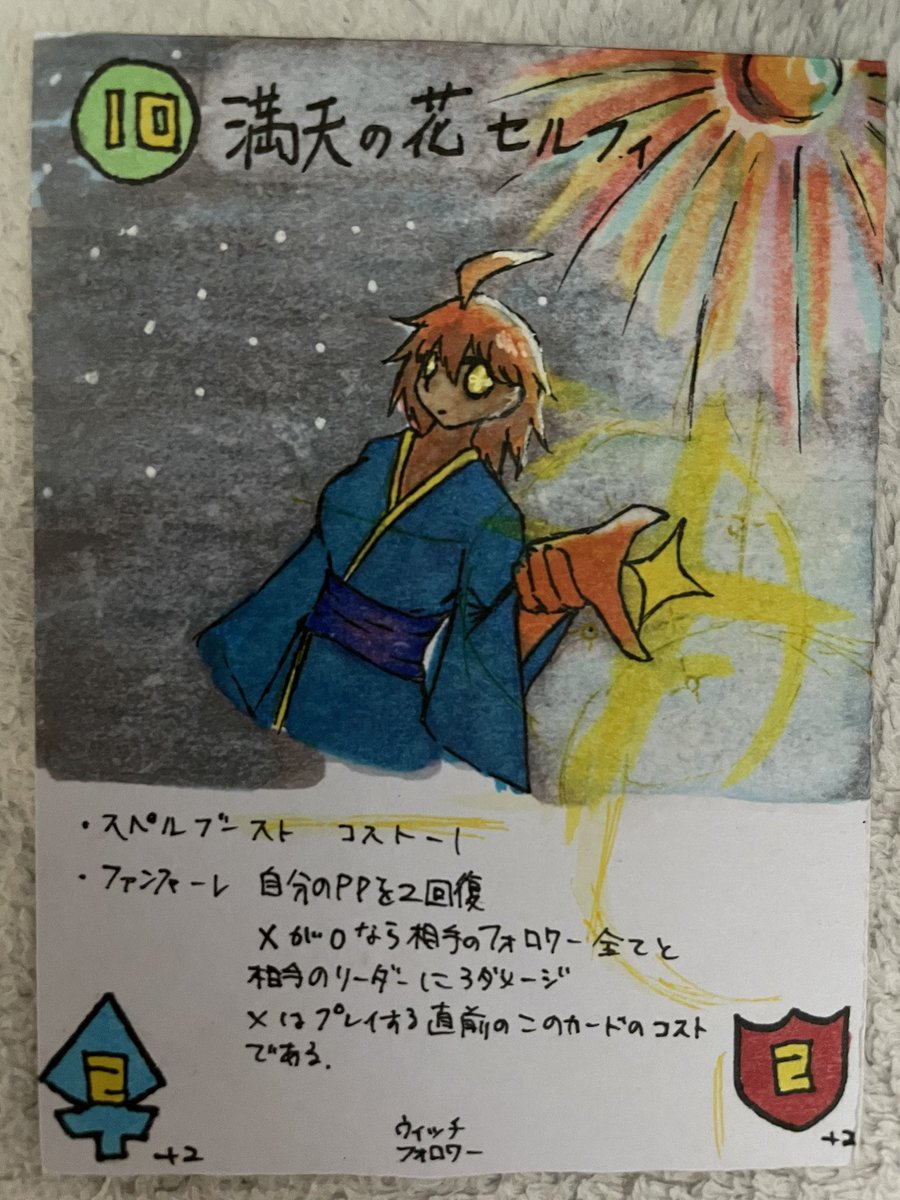 10 満天の花 セルフィ
・スペルブースト コストー1
・ファンファーレ 自分のPPを2回復
Xが0なら相手のフォロワー全てと
相手のリーダーに3ダメージ
Xはプレイする直前のこのカードのコスト
である.
2 +2
2 +2
ウィッチ
フォロワー